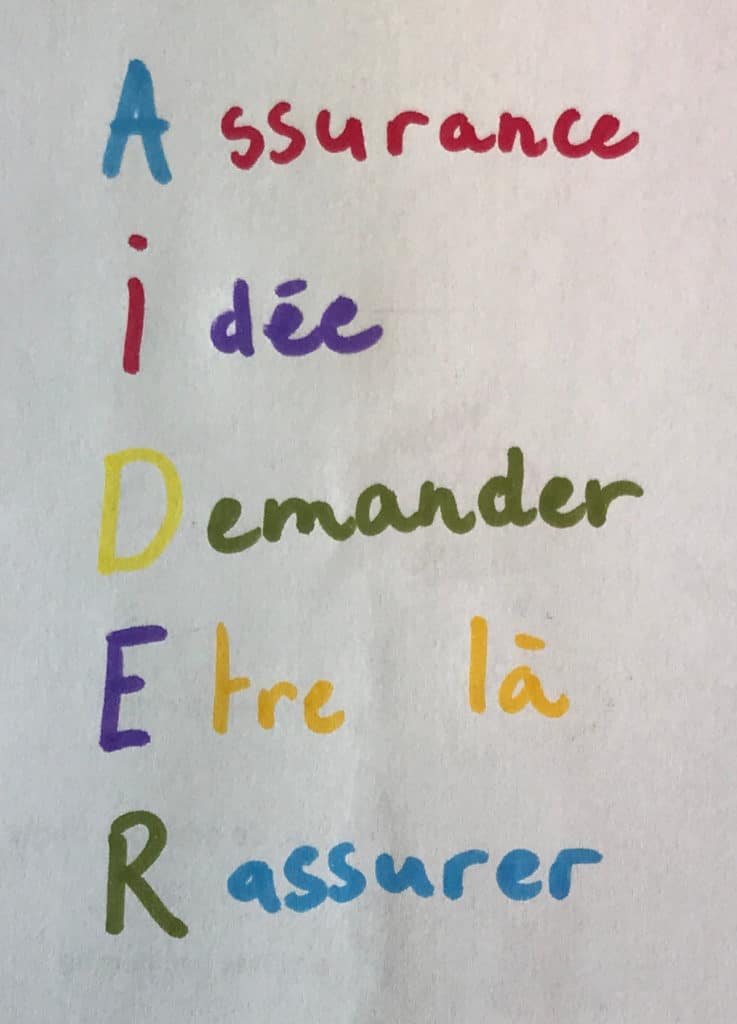 Assurance
idée
Demander
Etre là
Rassurer